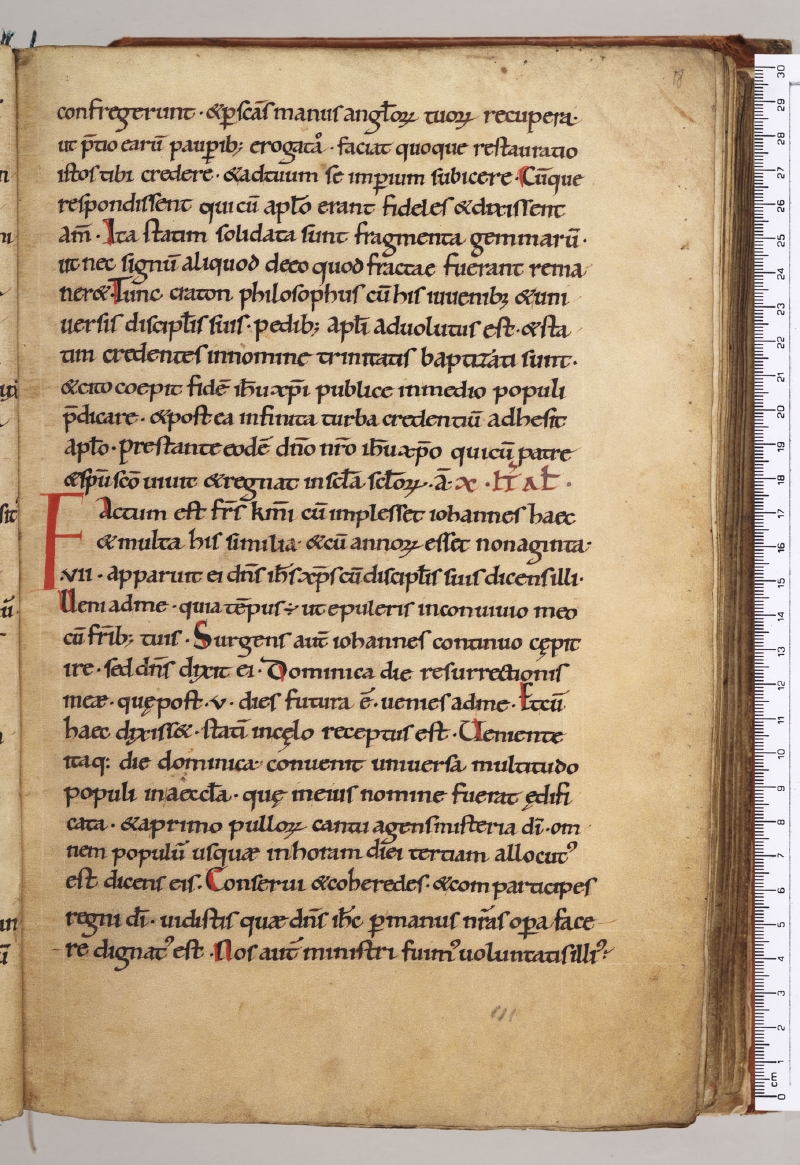 confregerunt · & ꝑ scās manus angl̄oꝝ tuoꝝ recupera·
ut p̄tio earū pauꝑib; erogatʼ · faciat quoque restauratio
istos tibi credere · & ad tuum se imꝑium subicere · Cūque
respondissent qui cū apl̄o erant fideles & dixissent
am̄ · Ita statim solidata sunt fragmenta gemmarū ·
ut nec signū aliquod deco quod fractae fuerant rema
ner& · Tunc craton philosophus cū his iuuenib; & uni
uersis discipl̄is suis · pedib; apl̄i aduolutus est · & sta
tim credentes innomine trinitatis baptizati sunt ·
& cito coepit fidē ih̄u xp̄i publice inmedio populi
p̄dicare · & postea infinita turba credentiū adhesit
apl̄o · prestante eodē dn̄o nr̄o ih̄u xp̄o qui cū patre
& sp̄u scō uiuit & regnat in scl̄a scl̄oꝝ · ā
Factum est fr̄s km̄i cū implesset iohannes haec
& multa his similia · & cū annoꝝ esset nonaginta ·
.vii · apparuit ei dn̄s ih̄s xp̄s cū discipl̄is suis dicens illi ·
Ueni adme · quia tēpus ÷ ut epuleris inconuiuio meo
cū fr̄ib; tuis · Surgens aut̄ iohannes continuo cępit
ire · sed dn̄s dixit ei · Dominica die resurrectionis
meæ · quę post · v · dies futura ē · uenies adme · Et cū
haec dixiss& · statī incęlo receptus est · Ueniente
itaq: die dominica conuenit uniuersa multitudo
populi inaeccl̄a · quę ineius nomine fuerat ędifi
cata · & aprimo pulloꝝ cantu agens misteria dī · om
nem populū usquæ inhoram diei tertiam allocutʼ
est dicens eis · Conserui & coheredes · & comparticipes
regni dī · uidistis quæ dn̄s ih̄c ꝑ manus nr̄as oꝑa face
re dignatʼ est · Nos aut̄ ministri fuimʼ uoluntatis illiʼ ·